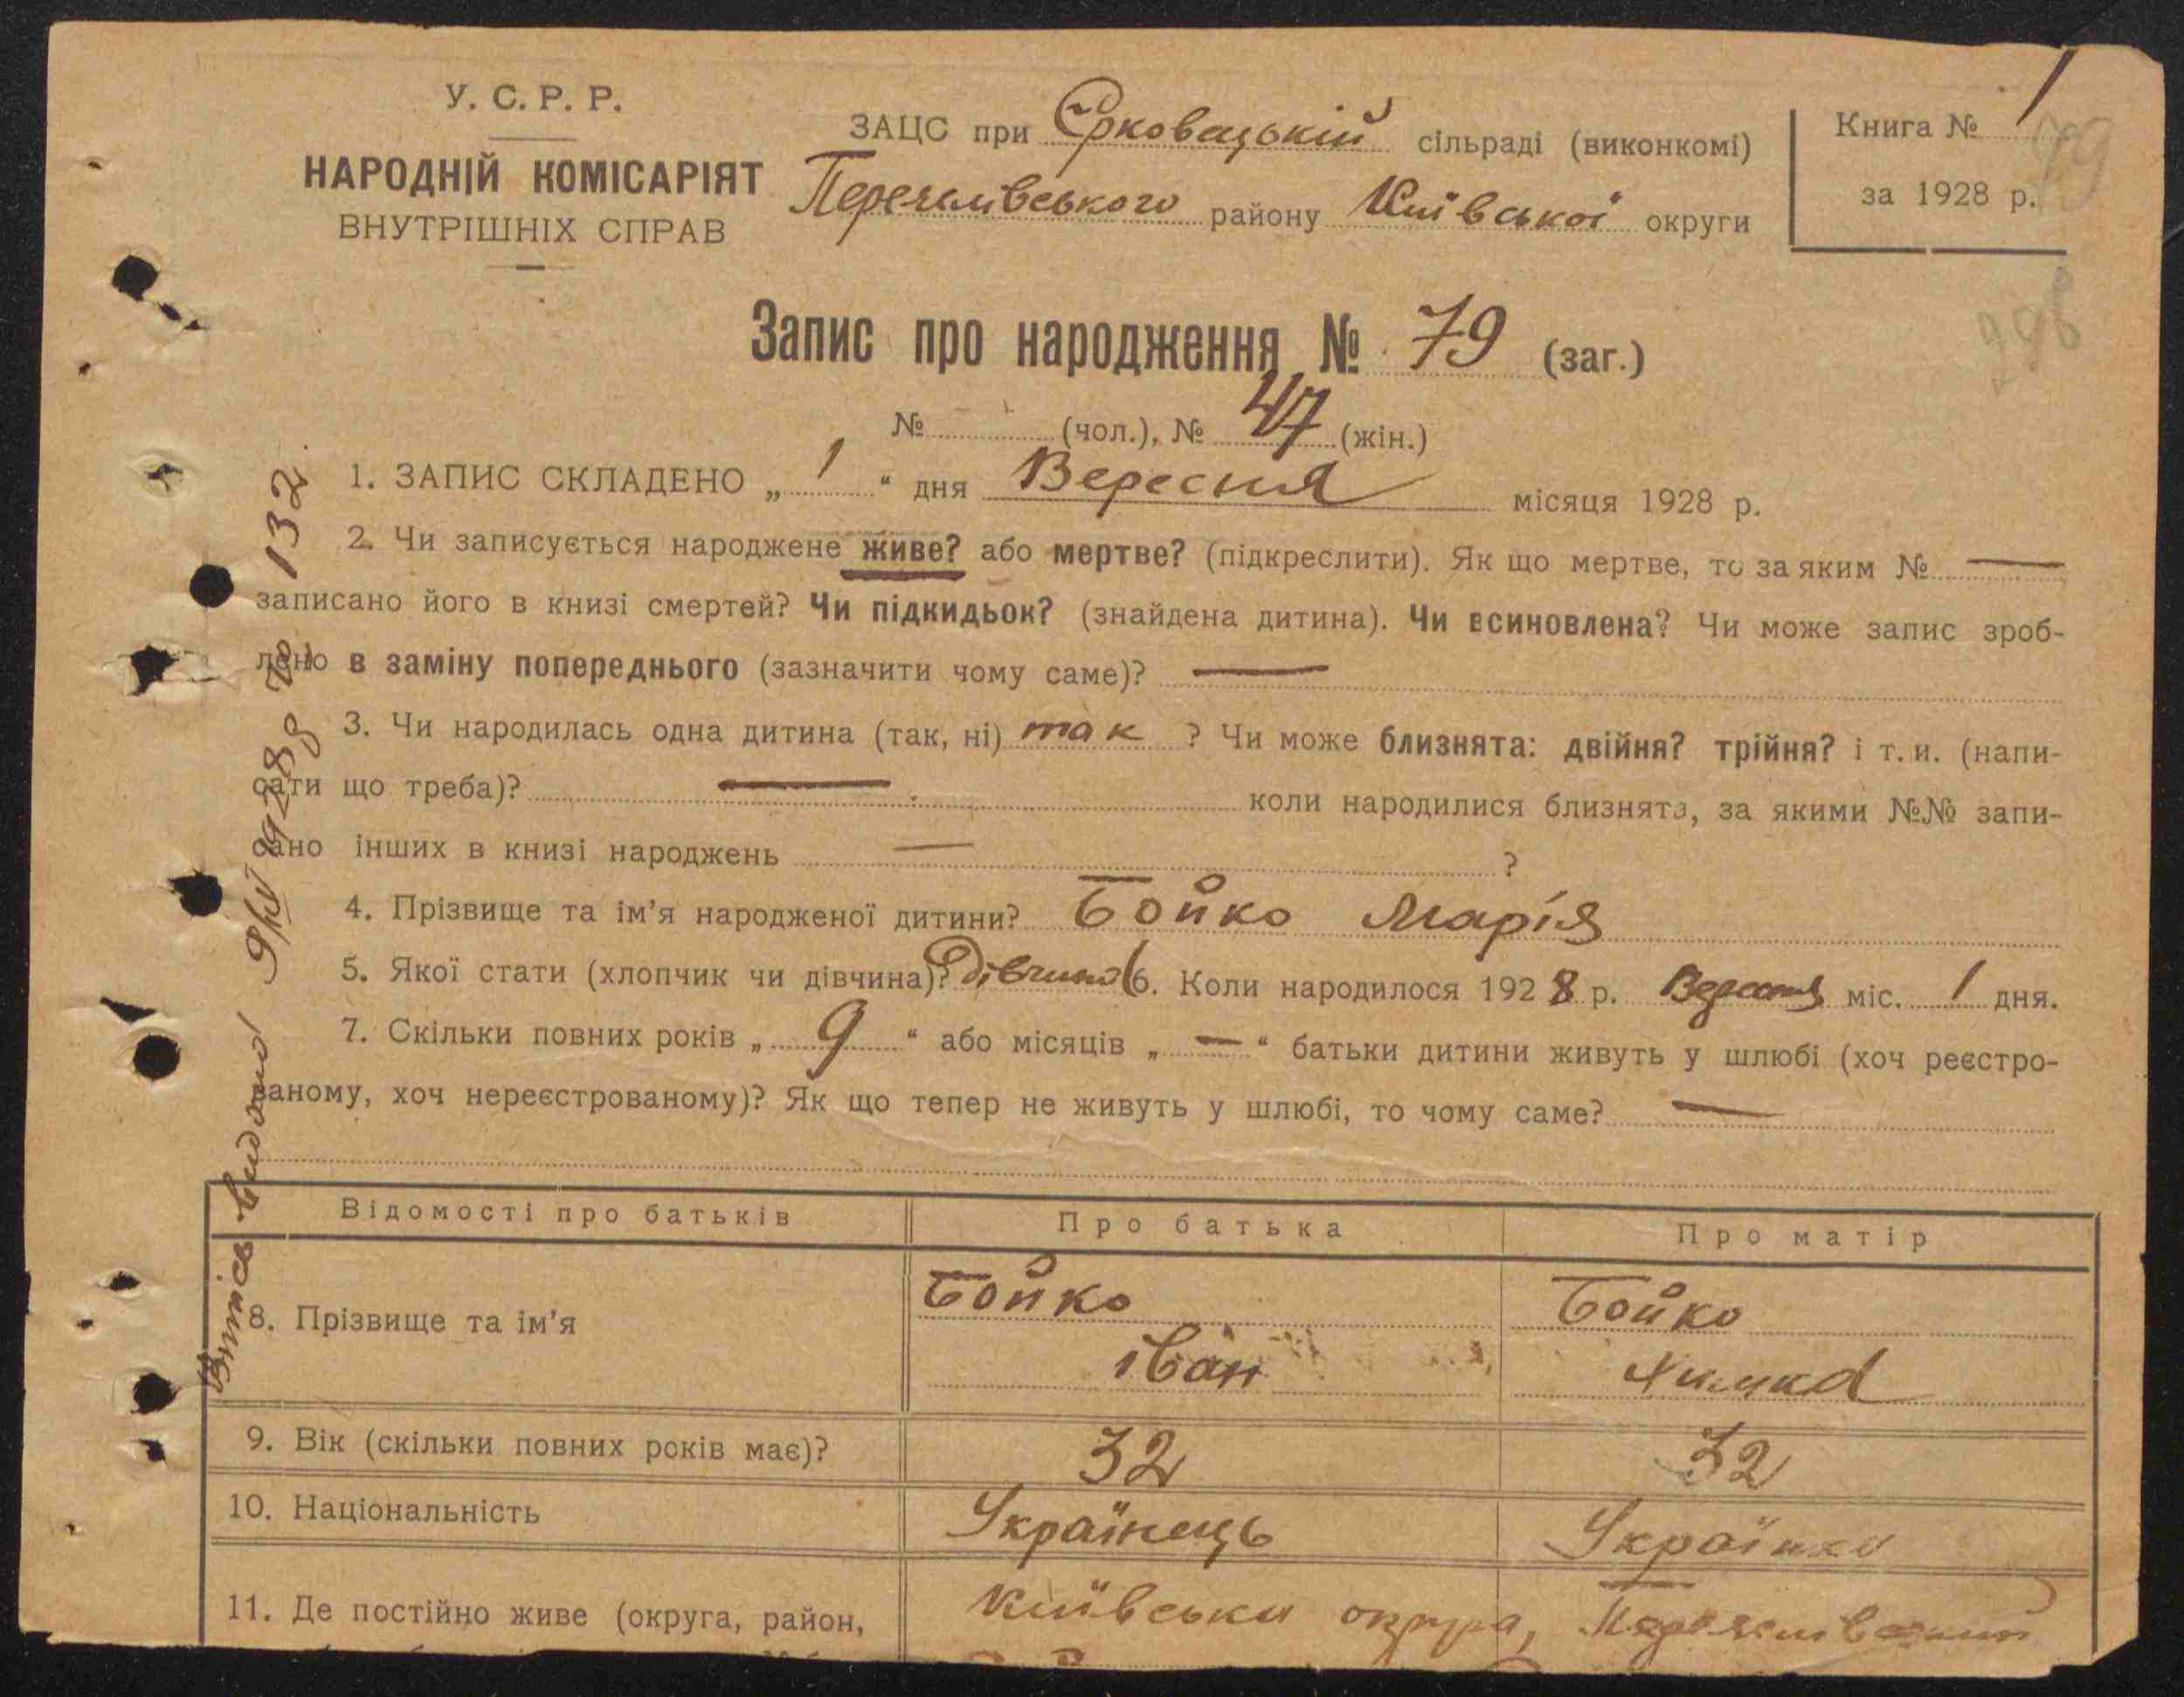 У. С. Р. Р.
НАРОДНІЙ КОМІСАРІЯТ
ВНУТРІШНІХ СПРАВ
ЗАЦС при Єрковецькій сільраді (виконкомі)
Переяслівського району Київської округи
Книга № 1
за 1928 р.
79
Запис про народження № 79 (заг.)
№ (чол.), № 47 (жін.)
1. ЗАПИС СКЛАДЕНО „ 1 “ дня Вересня місяця 1928 р.
2. Чи записується народжене живе? або мертве? (підкреслити). Як що мертве, то за яким № —
записано його в книзі смертей? Чи підкидьок? (знайдена дитина). Чи всиновлена? Чи може запис зроб-
лено в заміну попереднього (зазначити чому саме)? —
3. Чи народилась одна дитина (так, ні) так ? Чи може близнята: двійня? трійня? і т. и. (напи-
сати що треба)? — коли народилися близнята, за якими №№ запи-
сано інших в книзі народжень — ?
4. Прізвище та ім’я народженої дитини? Бойко Марія
5. Якої стати (хлопчик чи дівчина)? дівчина 6. Коли народилося 1928 р. Вересня міс. 1 дня.
7. Скільки повних років „ 9 “ або місяців „ — “ батьки дитини живуть у шлюбі (хоч реєстро-
ваному, хоч нереєстрованому)? Як що тепер не живуть у шлюбі, то чому саме? —
Витнісь видано 1928 р № 132.
Відомості про батьків Про батька Про матір
8. Прізвище та ім’я Бойко Бойко
Іван Химка
9. Вік (скільки повних років має)? 32 32
10. Національність Українець Українка
11. Де постійно живе (округа, район, Київська округа, Переяслівський